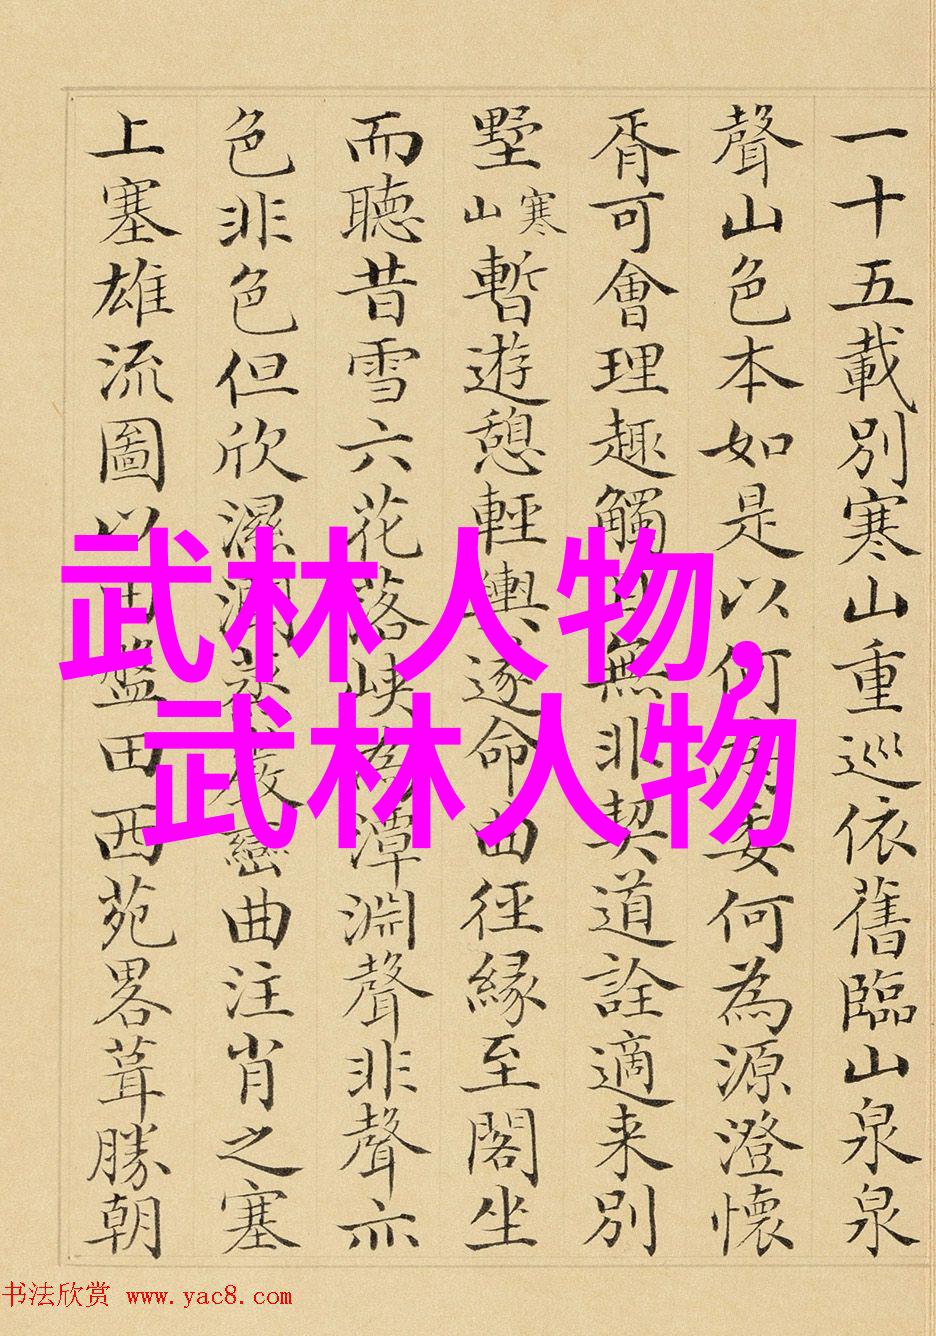 一十五載別寒山重巡依舊臨山泉泉
聲山色本如是以何為委何為源澄懷
胥可會理趣觸目無非契道詮適来別
墅寒山暫遊憩輕輿逐命由徑緣至閣坐
而聽昔雪六花落峽為潭淵聲非聲亦
色非色但欣濕潤蒸巖巒曲注肖之塞
上塞雄流圖以田盤田西苑畧葺勝朝
武林人物,
武林人物
书法欣赏 www.yac8.com